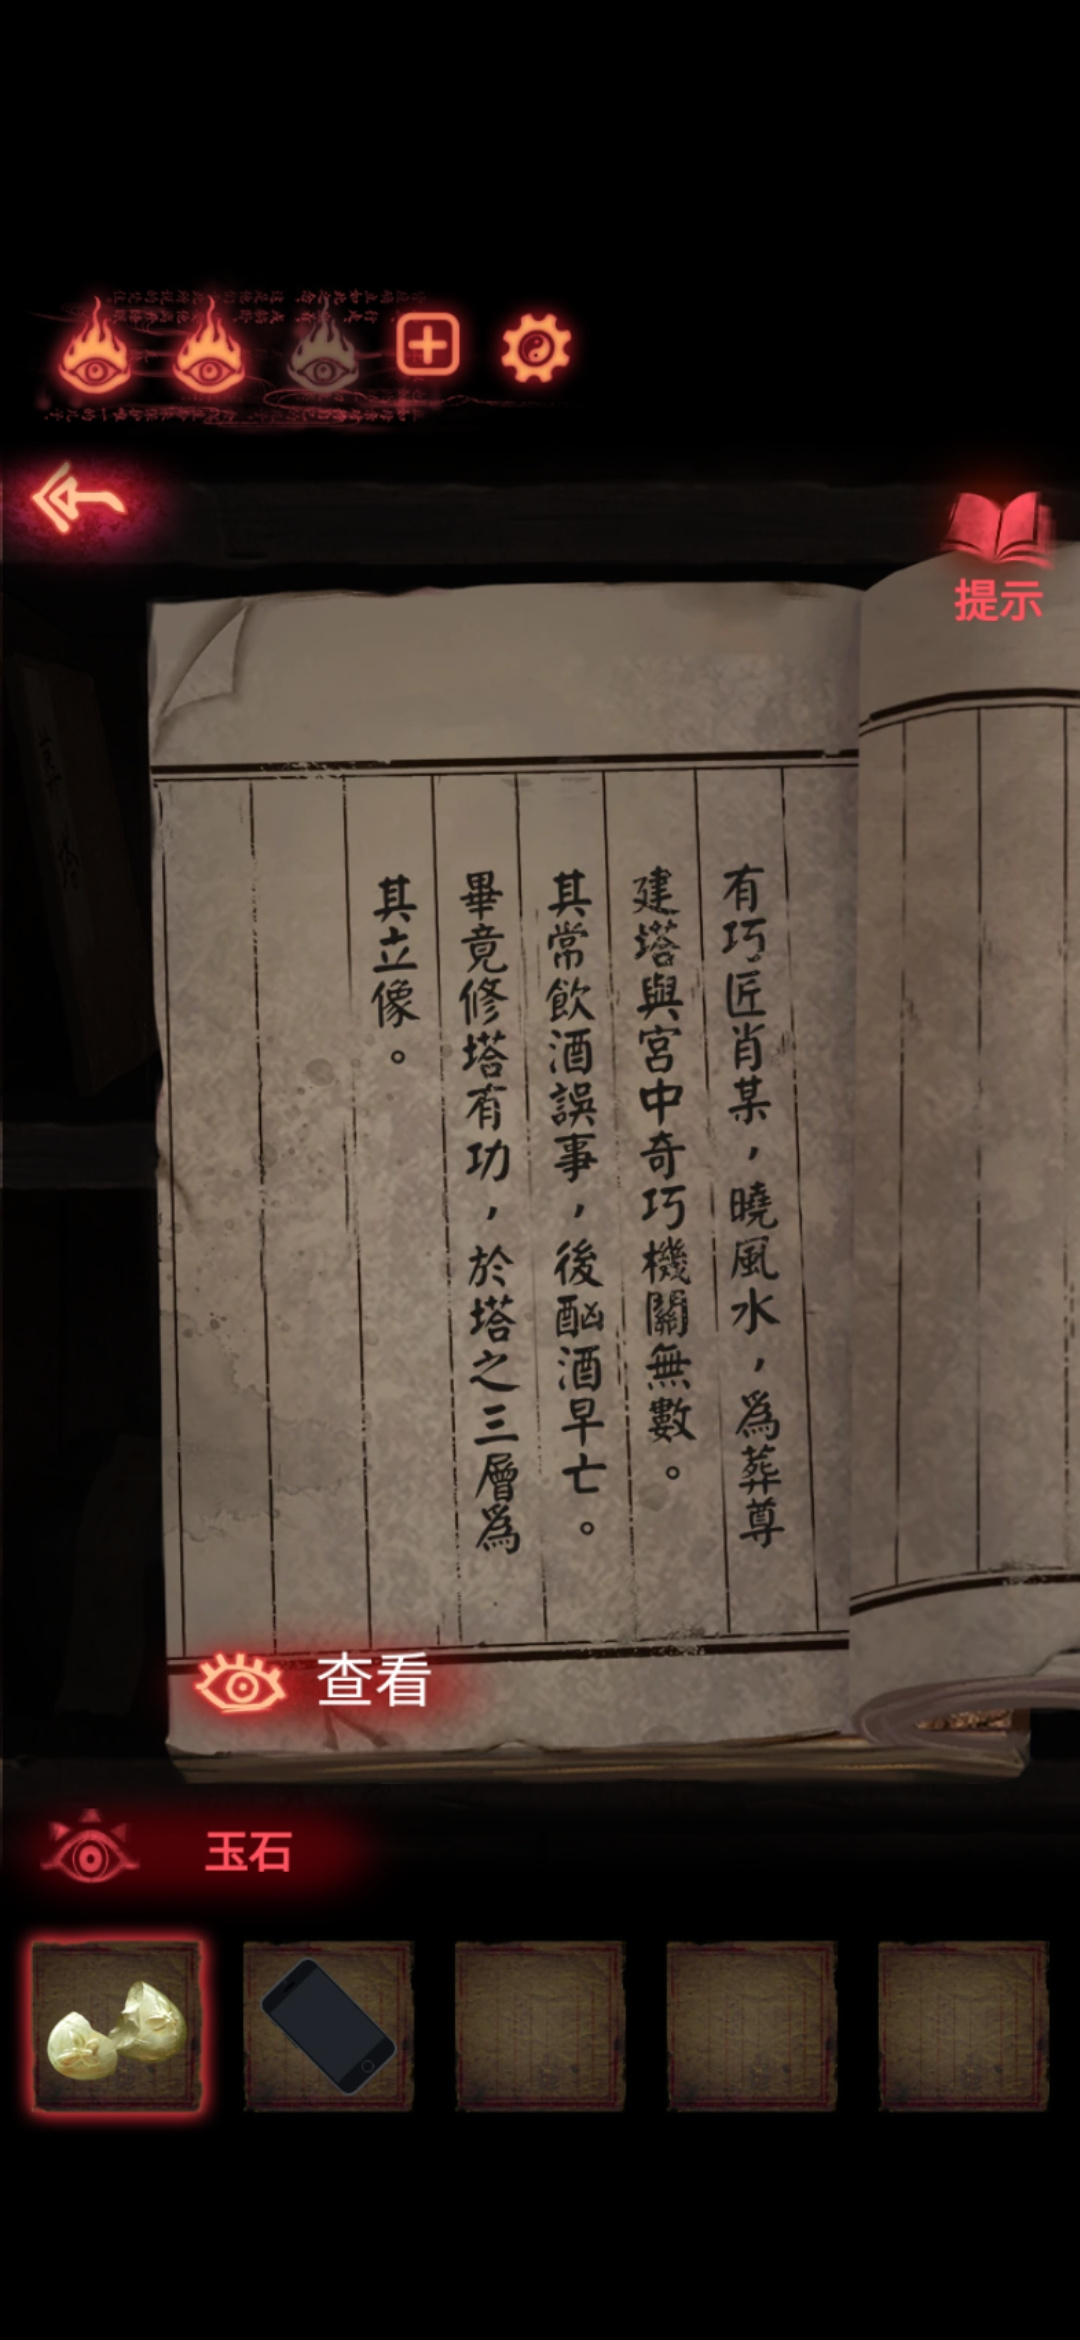 提示
有巧匠肖某，曉風水，爲葬尊
建塔與宮中奇巧機關無數。
其常飲酒誤事，後酗酒早亡。
畢竟修塔有功，於塔之三層爲
其立像。
查看
玉石